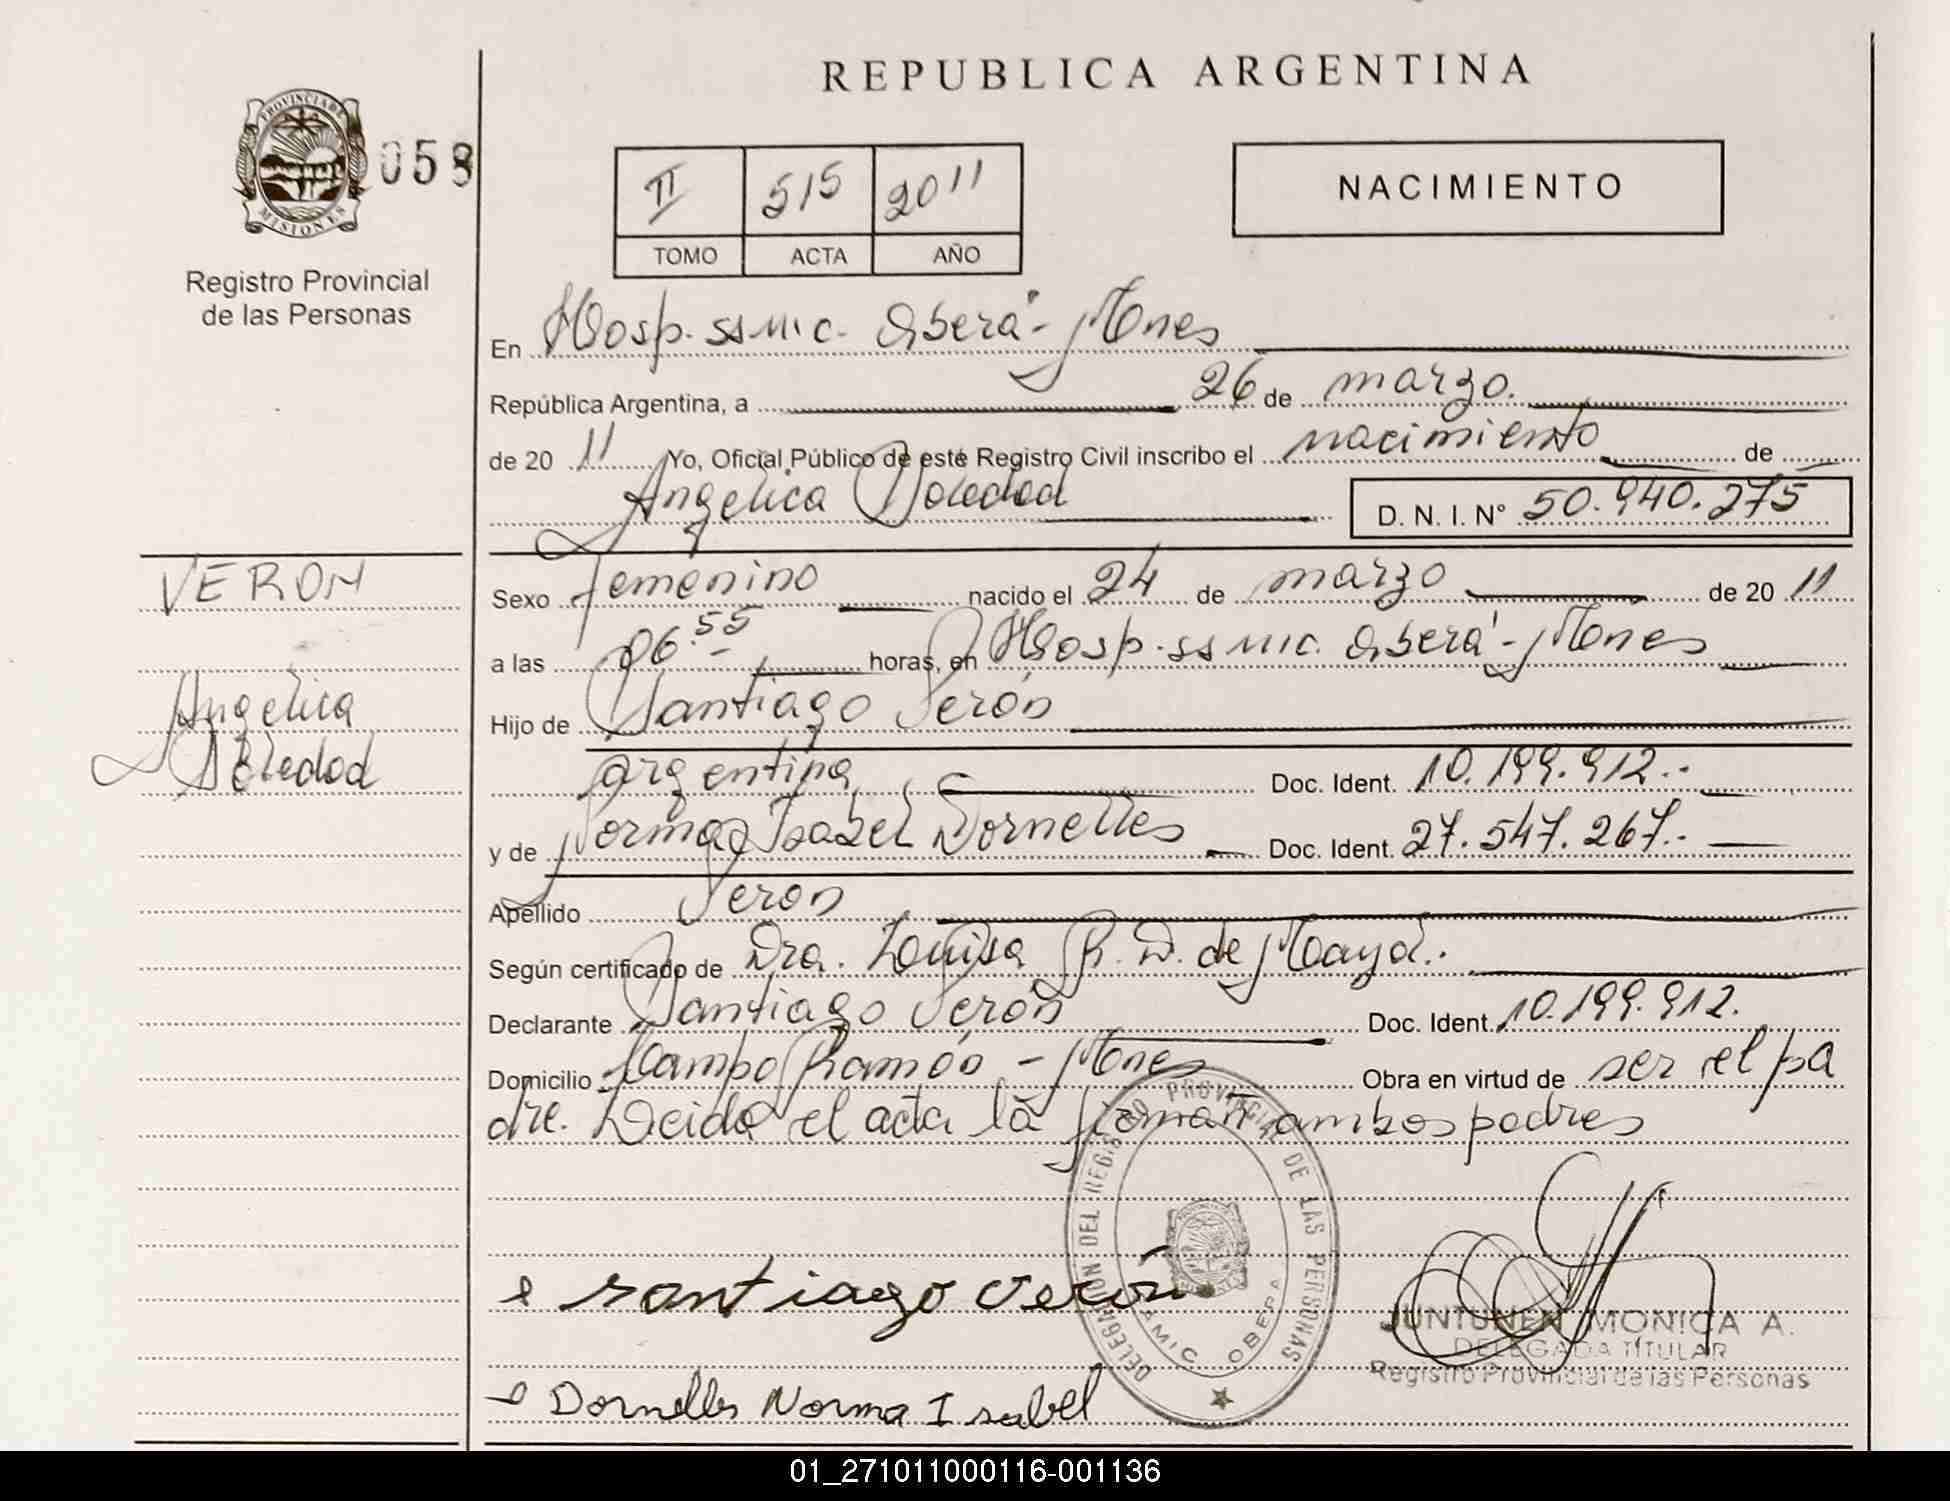 REPUBLICA ARGENTINA
PROVINCIA DE MISIONES
058
Registro Provincial
de las Personas
II 515 2011
TOMO ACTA AÑO
NACIMIENTO
En Hosp. ss mic. Oberá - Mnes
República Argentina, a 26 de marzo.
de 20 11 Yo, Oficial Público de este Registro Civil inscribo el nacimiento de
Angelica Soledad D. N. I. N° 50.940.275
VERON
Sexo femenino nacido el 24 de marzo de 20 11
a las 06.55 horas, en Hosp. ss mic. Oberá - Mnes
Angelica
Soledad
Hijo de Santiago Verón
argentina Doc. Ident. 10.199.912.-
y de Norma Isabel Dornelles Doc. Ident. 27.547.267.-
Apellido Veron
Según certificado de Dra. Louisa R. D. de Moaya.
Declarante Santiago Verón Doc. Ident. 10.199.912.
Domicilio Campo Ramón - Mnes Obra en virtud de ser el pa
dre. Leida el acta la firman ambos padres
DELEGACION DEL REGISTRO PROVINCIAL DE LAS PERSONAS
SAMIC OBERA
santiago verón
JUNTUNEN MONICA A.
DELEGADA TITULAR
Registro Provincial de las Personas
Dornelles Norma Isabel
01_271011000116-001136